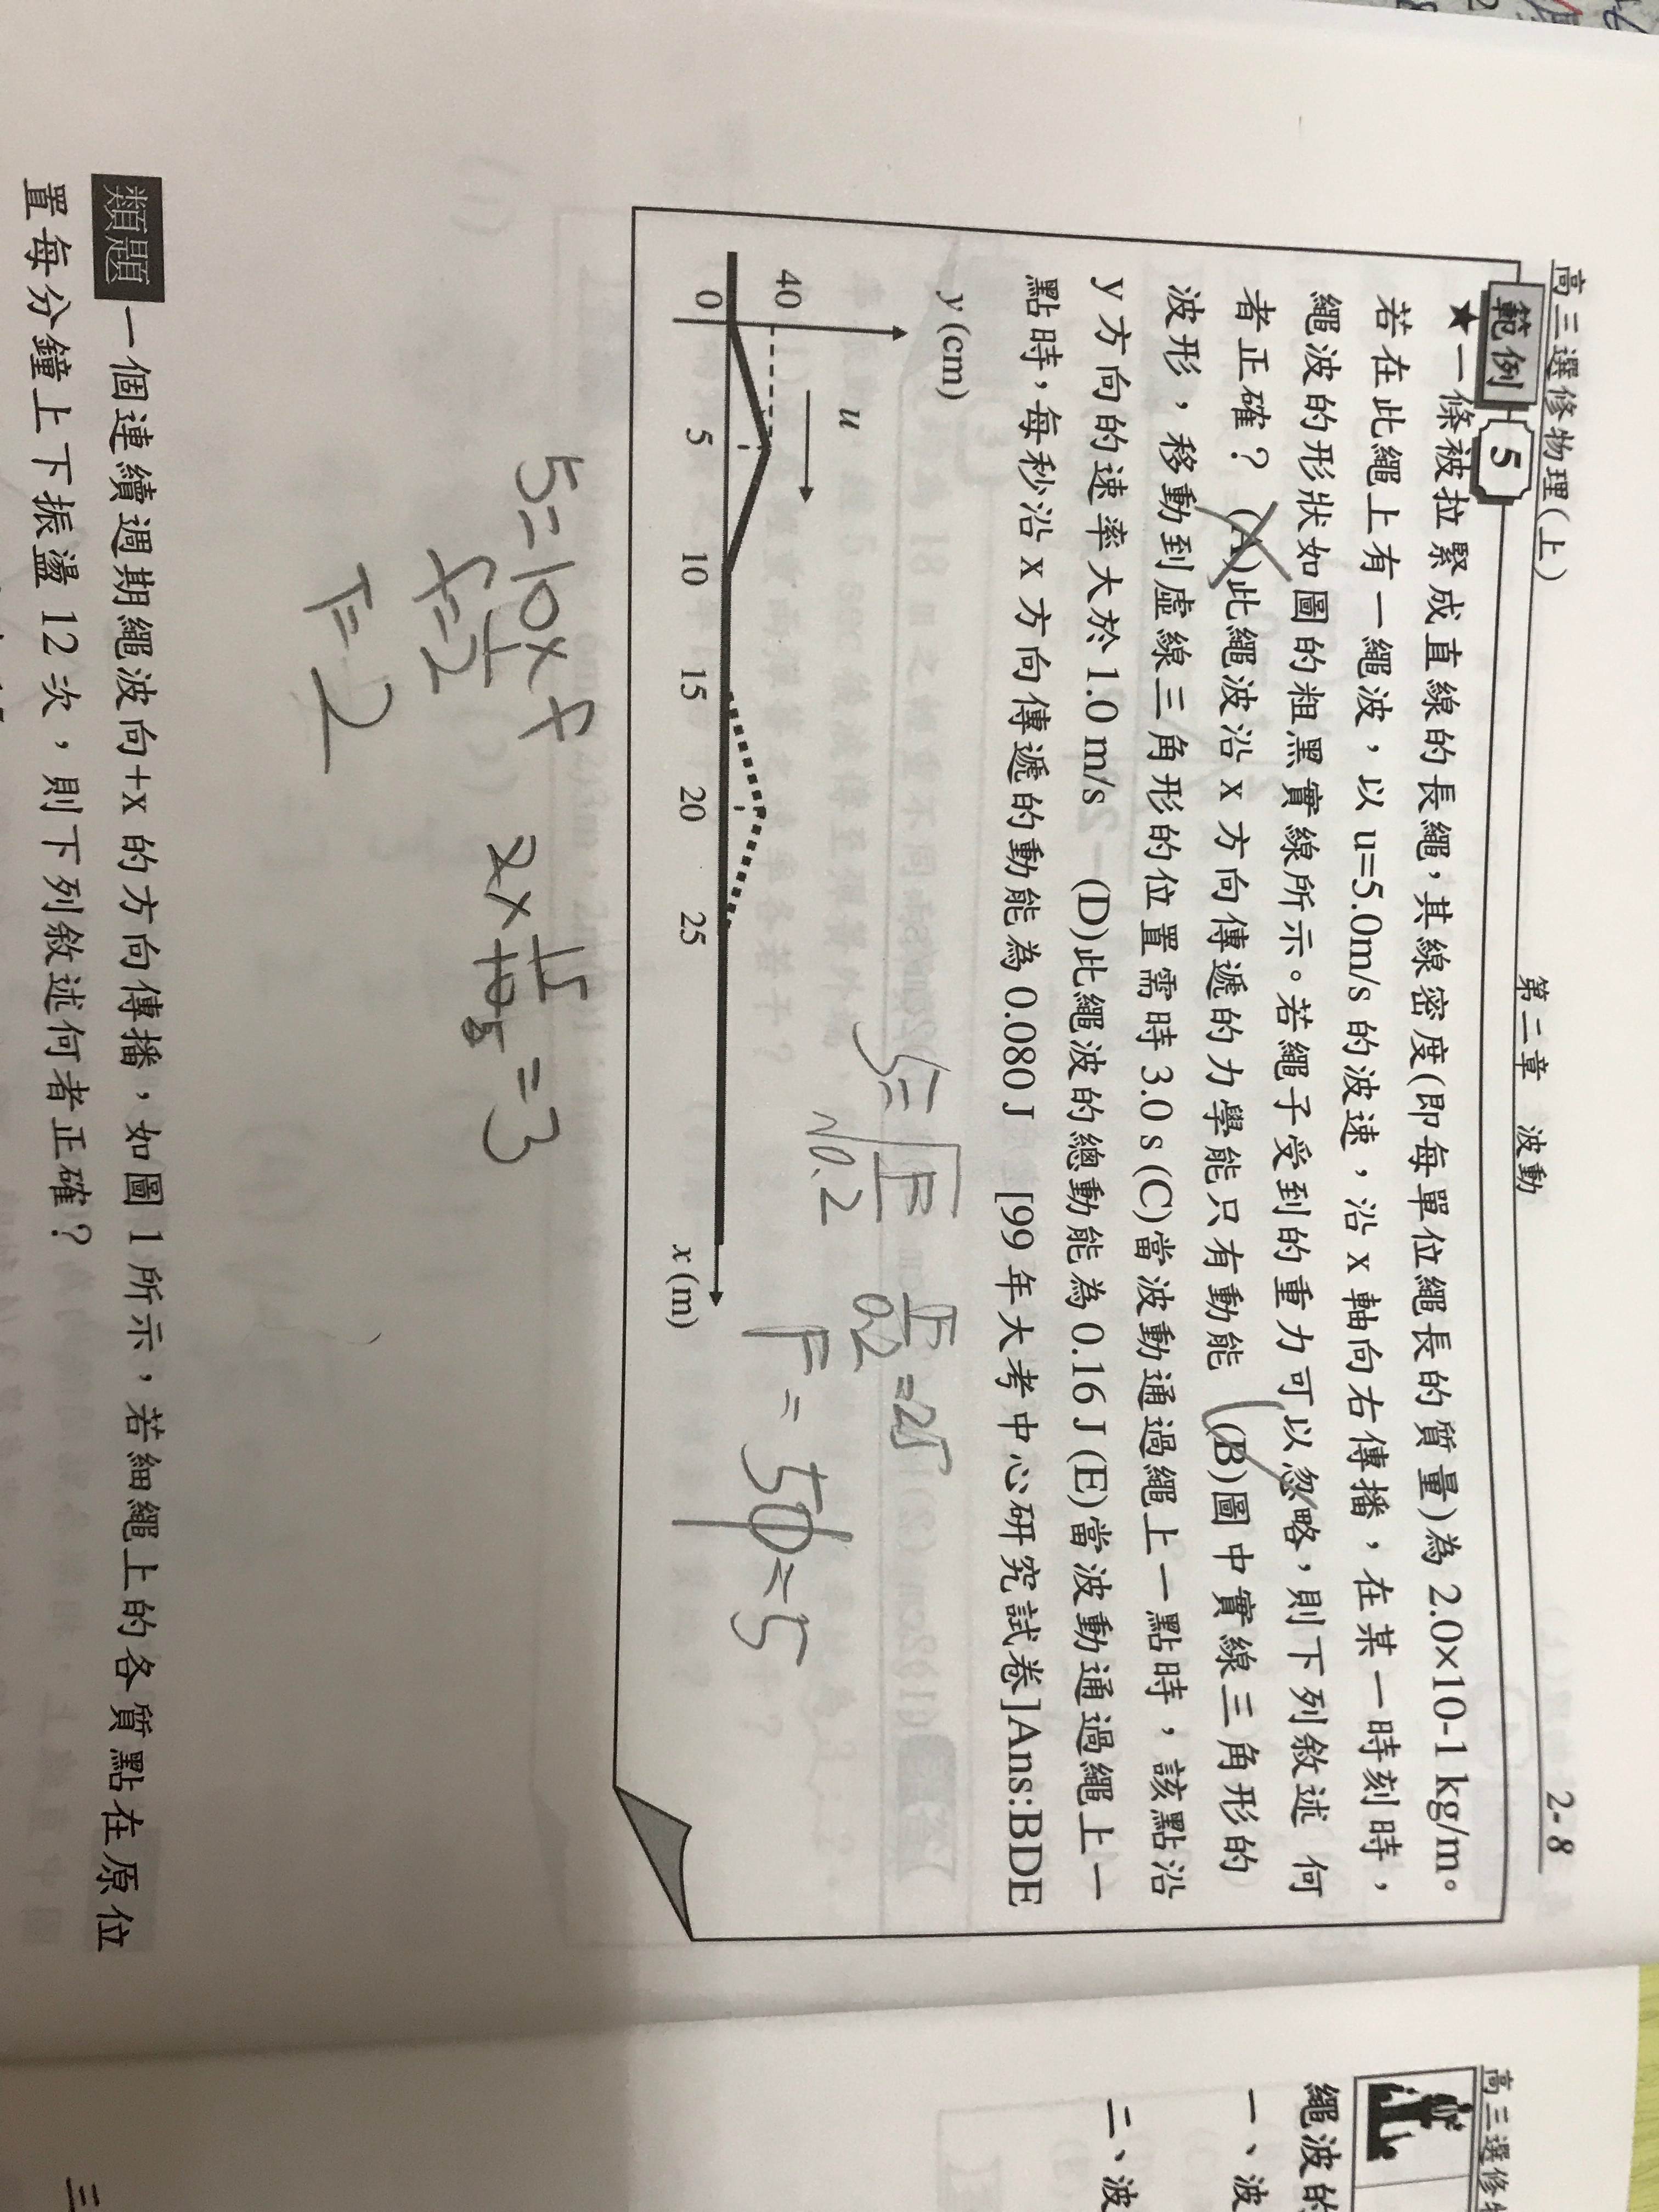 高三選修物理(上)
第二章 波動
2-8
範例 5
★一條被拉緊成直線的長繩，其線密度(即每單位繩長的質量)為 2.0×10-1 kg/m。
若在此繩上有一繩波，以 u=5.0m/s 的波速，沿 x 軸向右傳播，在某一時刻時，
繩波的形狀如圖的粗黑實線所示。若繩子受到的重力可以忽略，則下列敘述 何
者正確？ (A)此繩波沿 x 方向傳遞的力學能只有動能 (B)圖中實線三角形的
波形，移動到虛線三角形的位置需時 3.0 s (C)當波動通過繩上一點時，該點沿
y 方向的速率大於 1.0 m/s (D)此繩波的總動能為 0.16 J (E)當波動通過繩上一
點時，每秒沿 x 方向傳遞的動能為 0.080 J [99 年大考中心研究試卷]Ans:BDE
y (cm)
u
40
0 5 10 15 20 25
x (m)
F/0.2 = 25
F = 50 = 5
5=10×f
f=1/2
T=2
=3
類題 一個連續週期繩波向+x 的方向傳播，如圖 1 所示，若細繩上的各質點在原位
置每分鐘上下振盪 12 次，則下列敘述何者正確？
高三選修
繩波的
一、波
二、波
三